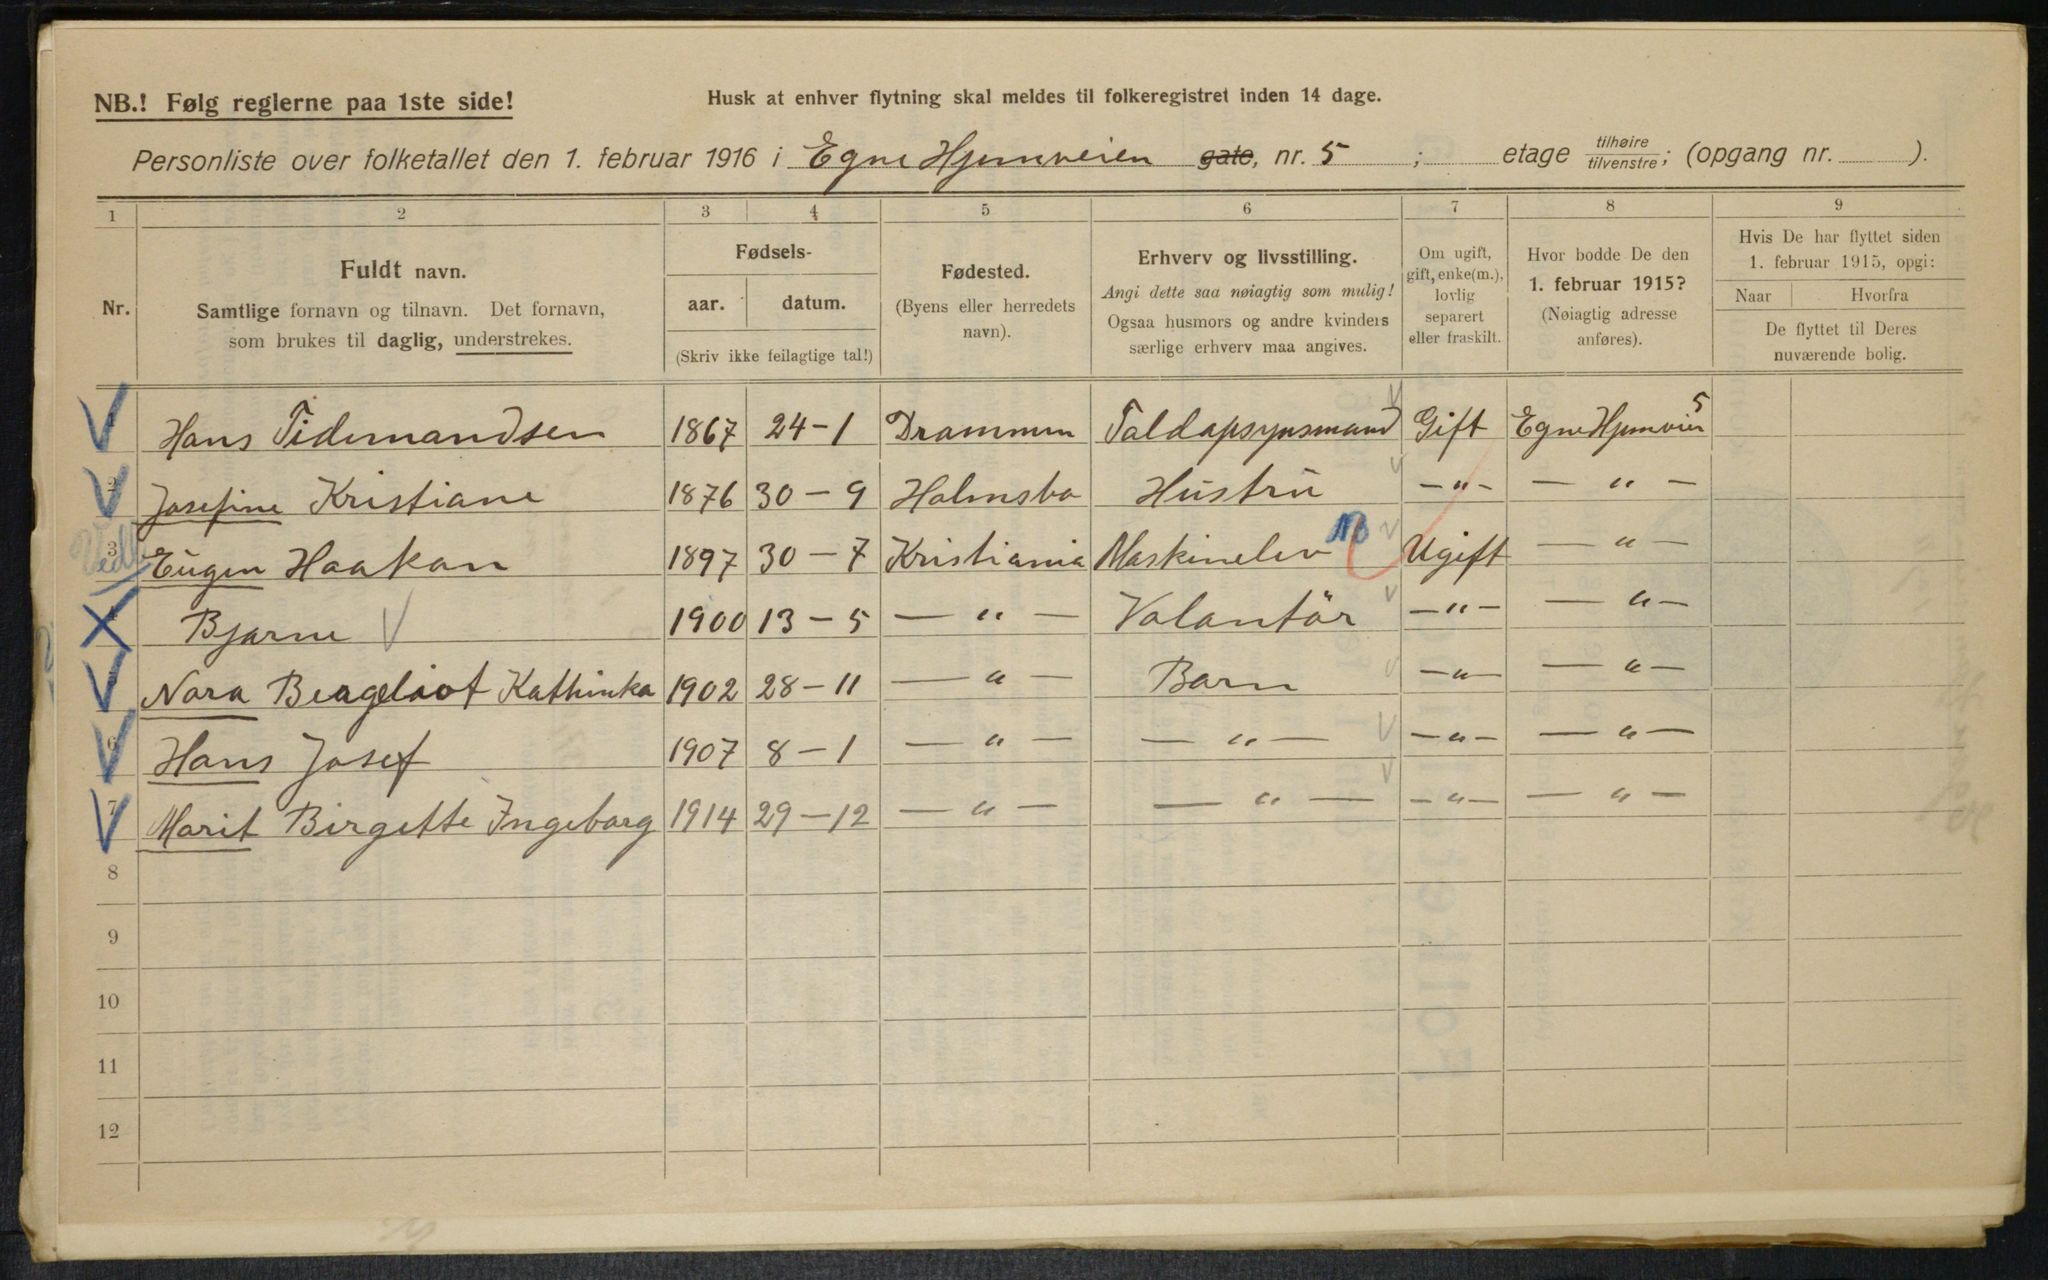 NB.! Følg reglerne paa 1ste side!
Husk at enhver flytning skal meldes til folkeregistret inden 14 dage.
Personliste over folketallet den 1. februar 1916 i Egne Hjemveien gate, nr. 5 ; etage tilhøire tilvenstre; (opgang nr. ).
1 2 3 4 5 6 7 8 9
Nr.
Fuldt navn.
Samtlige fornavn og tilnavn. Det fornavn,
som brukes til daglig, understrekes.
Fødsels-
aar. datum.
(Skriv ikke feilagtige tal!)
Fødested.
(Byens eller herredets
navn).
Erhverv og livsstilling.
Angi dette saa nøiagtig som mulig!
Ogsaa husmors og andre kvinders
særlige erhverv maa angives.
Om ugift,
gift, enke(m.),
lovlig
separert
eller fraskilt.
Hvor bodde De den
1. februar 1915?
(Nøiagtig adresse
anføres).
Hvis De har flyttet siden
1. februar 1915, opgi:
Naar Hvorfra
De flyttet til Deres
nuværende bolig.
Hans Tidemandsen 1867 24-1 Drammen Toldopsynsmand Gift Egne Hjemveien 5
2 Josefine Kristiane 1876 30-9 Holmsbo Hustru -"- -"-
3 Eugen Haakon 1897 30-7 Kristiania Maskinelev Ugift -"-
Bjarne 1900 13-5 -"- Volantör -"- -"-
5 Nora Bergeliot Kathinka 1902 28-11 -"- Barn -"- -"-
6 Hans Josef 1907 8-1 -"- -"- -"- -"-
7 Marit Birgette Ingeborg 1914 29-12 -"- -"- -"- -"-
8
9
10
11
12